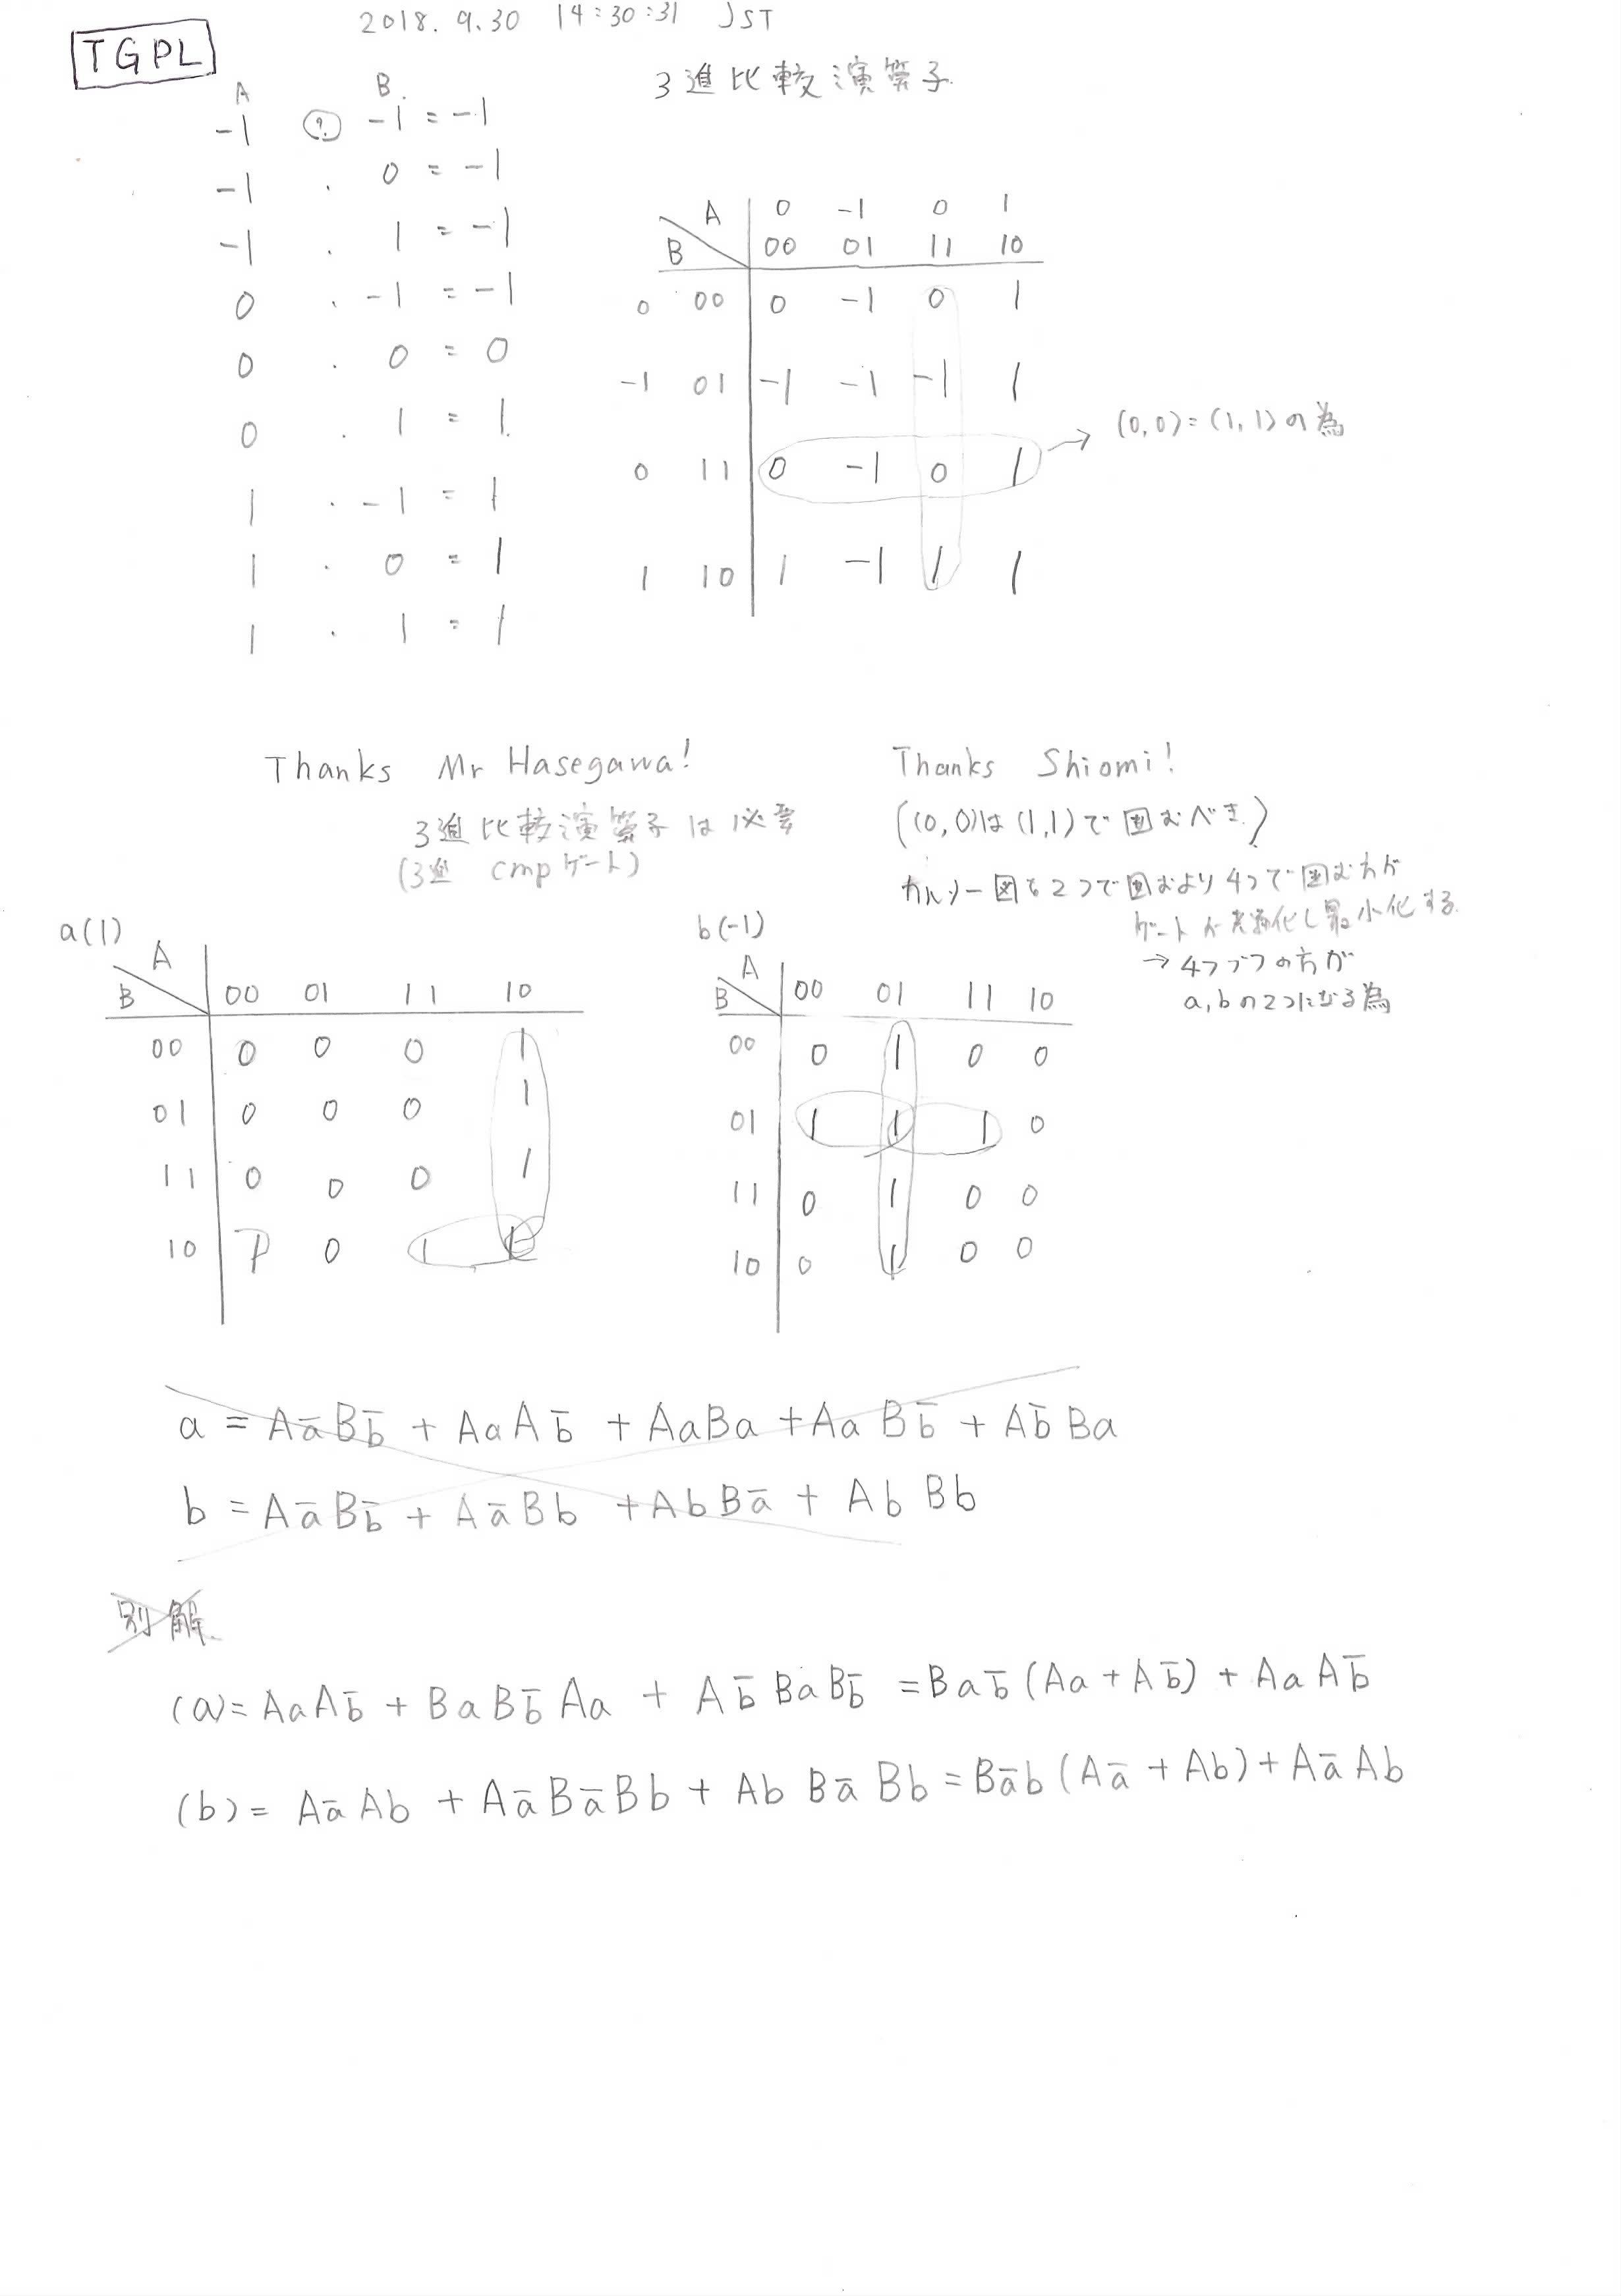 2018. 9. 30 14:30:31 JST
TGPL
3進比較演算子
A B.
-1 ? -1 = -1
-1 . 0 = -1
-1 . 1 = -1
0 . -1 = -1
0 . 0 = 0
0 . 1 = 1.
1 . -1 = 1
1 . 0 = 1
1 . 1 = 1
A 0 -1 0 1
B 00 01 11 10
0 00 0 -1 0 1
-1 01 -1 -1 -1 1
0 11 0 -1 0 1
1 10 1 -1 1 1
→ (0,0)=(1,1)の為
Thanks Mr Hasegawa!
3進比較演算子は必要
(3進 cmpゲート)
Thanks Shiomi!
((0,0)は(1,1)で囲むべき.)
カルノー図も2つで囲むより4つで囲む方が
ゲートが共通化し最小化する.
→4つづつの方が
a,bの2つになる為
a(1)
A
B 00 01 11 10
00 0 0 0 1
01 0 0 0 1
11 0 0 0 1
10 0 1 1
b(-1)
A
B 00 01 11 10
00 0 1 0 0
01 1 1 1 0
11 0 1 0 0
10 0 1 0 0
a = Aa̅Bb̅ + AaAb̅ + AaBa + AaBb̅ + Ab̅Ba
b = Aa̅Bb̅ + Aa̅Bb + AbBa̅ + AbBb
別解.
(a)= AaAb̅ + BaBb̅Aa + Ab̅BaBb̅ = Bab̅(Aa + Ab̅) + AaAb̅
(b)= Aa̅Ab + Aa̅Ba̅Bb + AbBa̅Bb = Ba̅b(Aa̅ + Ab) + Aa̅Ab